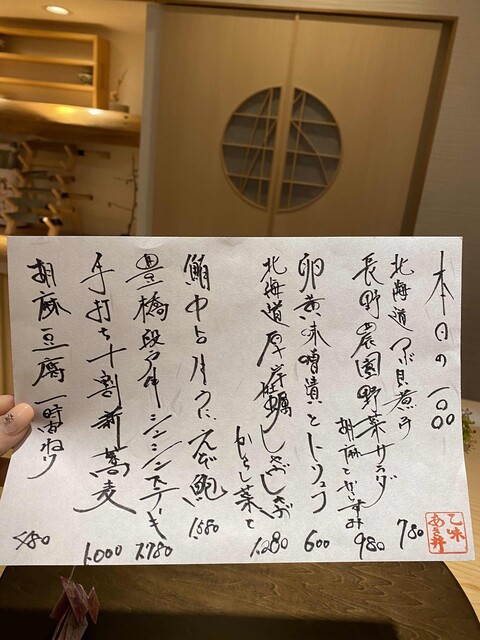 本日の一〇〇
北海道つぶ貝煮
780
長野農園野菜サラダ
胡麻とからすみ
980
卵黄味噌漬とトリュフ
600
北海道厚岸牡蠣しゃぶしゃぶ
からし菜と
1,280
鮪中とろ
うに
鮑
1,580
豊橋段戸牛シンシンステーキ
1,780
手打ち十割新蕎麦
1,000
胡麻豆腐
580
乙味
あさ井